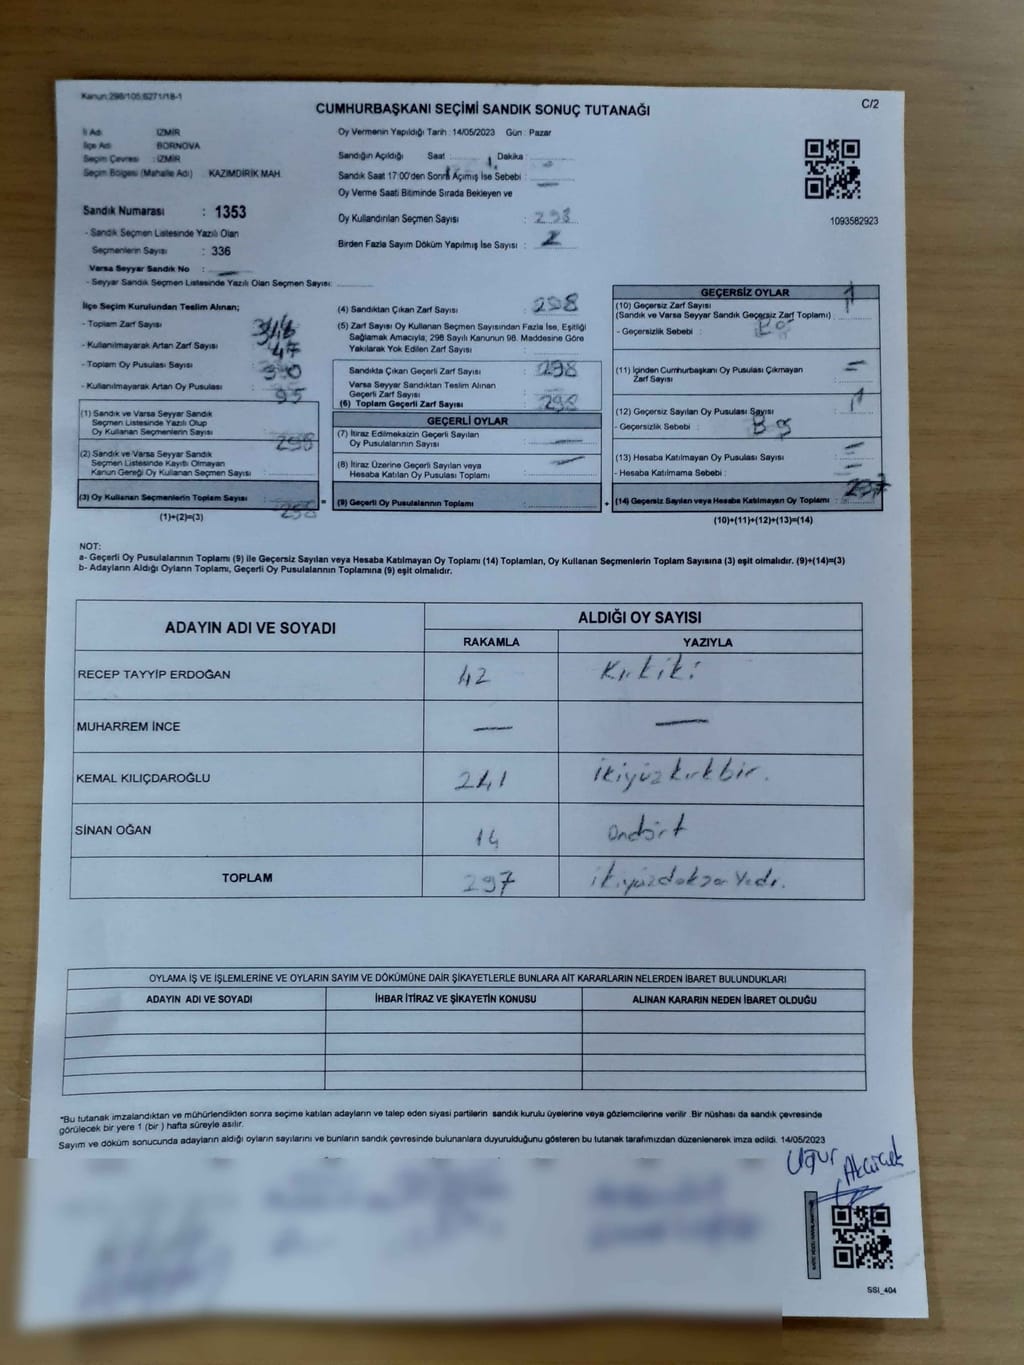 Kanun:298/105;6271/18-1
CUMHURBAŞKANI SEÇİMİ SANDIK SONUÇ TUTANAĞI
C/2
İl Adı : İZMİR
İlçe Adı : BORNOVA
Seçim Çevresi : İZMİR
Seçim Bölgesi (Mahalle Adı) KAZIMDİRİK MAH.
Sandık Numarası : 1353
- Sandık Seçmen Listesinde Yazılı Olan
Seçmenlerin Sayısı : 336
Varsa Seyyar Sandık No :
- Seyyar Sandık Seçmen Listesinde Yazılı Olan Seçmen Sayısı:
Oy Vermenin Yapıldığı Tarih : 14/05/2023 Gün : Pazar
Sandığın Açıldığı Saat : Dakika :
Sandık Saat 17:00'den Sonra Açımış İse Sebebi :
Oy Verme Saati Bitiminde Sırada Bekleyen ve
Oy Kullandırılan Seçmen Sayısı : 298
Birden Fazla Sayım Döküm Yapılmış İse Sayısı :
1093582923
İlçe Seçim Kurulundan Teslim Alınan;
- Toplam Zarf Sayısı
- Kullanılmayarak Artan Zarf Sayısı 47
- Toplam Oy Pusulası Sayısı
- Kullanılmayarak Artan Oy Pusulası 95
(1) Sandık ve Varsa Seyyar Sandık
Seçmen Listesinde Yazılı Olup
Oy Kullanan Seçmenlerin Sayısı : 298
(2) Sandık ve Varsa Seyyar Sandık
Seçmen Listesinde Kayıtlı Olmayan
Kanun Gereği Oy Kullanan Seçmen Sayısı :
(3) Oy Kullanan Seçmenlerin Toplam Sayısı : 298
(1)+(2)=(3)
(4) Sandıktan Çıkan Zarf Sayısı : 298
(5) Zarf Sayısı Oy Kullanan Seçmen Sayısından Fazla İse, Eşitliği
Sağlamak Amacıyla, 298 Sayılı Kanunun 98. Maddesine Göre
Yakılarak Yok Edilen Zarf Sayısı :
Sandıkta Çıkan Geçerli Zarf Sayısı : 298
Varsa Seyyar Sandıktan Teslim Alınan
Geçerli Zarf Sayısı :
(6) Toplam Geçerli Zarf Sayısı : 298
GEÇERLİ OYLAR
(7) İtiraz Edilmeksizin Geçerli Sayılan
Oy Pusulalarının Sayısı :
(8) İtiraz Üzerine Geçerli Sayılan veya
Hesaba Katılan Oy Pusulası Toplamı :
= (9) Geçerli Oy Pusulalarının Toplamı :
GEÇERSİZ OYLAR
(10) Geçersiz Zarf Sayısı
(Sandık ve Varsa Seyyar Sandık Geçersiz Zarf Toplamı) : 1
- Geçersizlik Sebebi : Boş
(11) İçinden Cumhurbaşkanı Oy Pusulası Çıkmayan
Zarf Sayısı : —
(12) Geçersiz Sayılan Oy Pusulası Sayısı :
- Geçersizlik Sebebi : Boş
(13) Hesaba Katılmayan Oy Pusulası Sayısı : —
- Hesaba Katılmama Sebebi : —
+ (14) Geçersiz Sayılan veya Hesaba Katılmayan Oy Toplamı : 297
(10)+(11)+(12)+(13)=(14)
NOT:
a- Geçerli Oy Pusulalarının Toplamı (9) ile Geçersiz Sayılan veya Hesaba Katılmayan Oy Toplamı (14) Toplamları, Oy Kullanan Seçmenlerin Toplam Sayısına (3) eşit olmalıdır. (9)+(14)=(3)
b- Adayların Aldığı Oyların Toplamı, Geçerli Oy Pusulalarının Toplamına (9) eşit olmalıdır.
ADAYIN ADI VE SOYADI
ALDIĞI OY SAYISI
RAKAMLA YAZIYLA
RECEP TAYYİP ERDOĞAN 42 Kırkiki
MUHARREM İNCE — —
KEMAL KILIÇDAROĞLU 241 ikiyüzkırkbir.
SİNAN OĞAN 14 Ondört
TOPLAM 297 ikiyüzdoksanYedi.
OYLAMA İŞ VE İŞLEMLERİNE VE OYLARIN SAYIM VE DÖKÜMÜNE DAİR ŞİKAYETLERLE BUNLARA AİT KARARLARIN NELERDEN İBARET BULUNDUKLARI
ADAYIN ADI VE SOYADI İHBAR İTİRAZ VE ŞİKAYETİN KONUSU ALINAN KARARIN NEDEN İBARET OLDUĞU
*Bu tutanak imzalandıktan ve mühürlendikten sonra seçime katılan adayların ve talep eden siyasi partilerin sandık kurulu üyelerine veya gözlemcilerine verilir. Bir nüshası da sandık çevresinde
görülecek bir yere 1 (bir ) hafta süreyle asılır.
Sayım ve döküm sonucunda adayların aldığı oyların sayılarını ve bunların sandık çevresinde bulunanlara duyurulduğunu gösteren bu tutanak tarafımızdan düzenlenerek imza edildi. 14/05/2023
Uğur
SSI_404